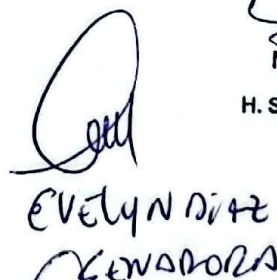 H. S
EVELYN DIAZ
SENADORA